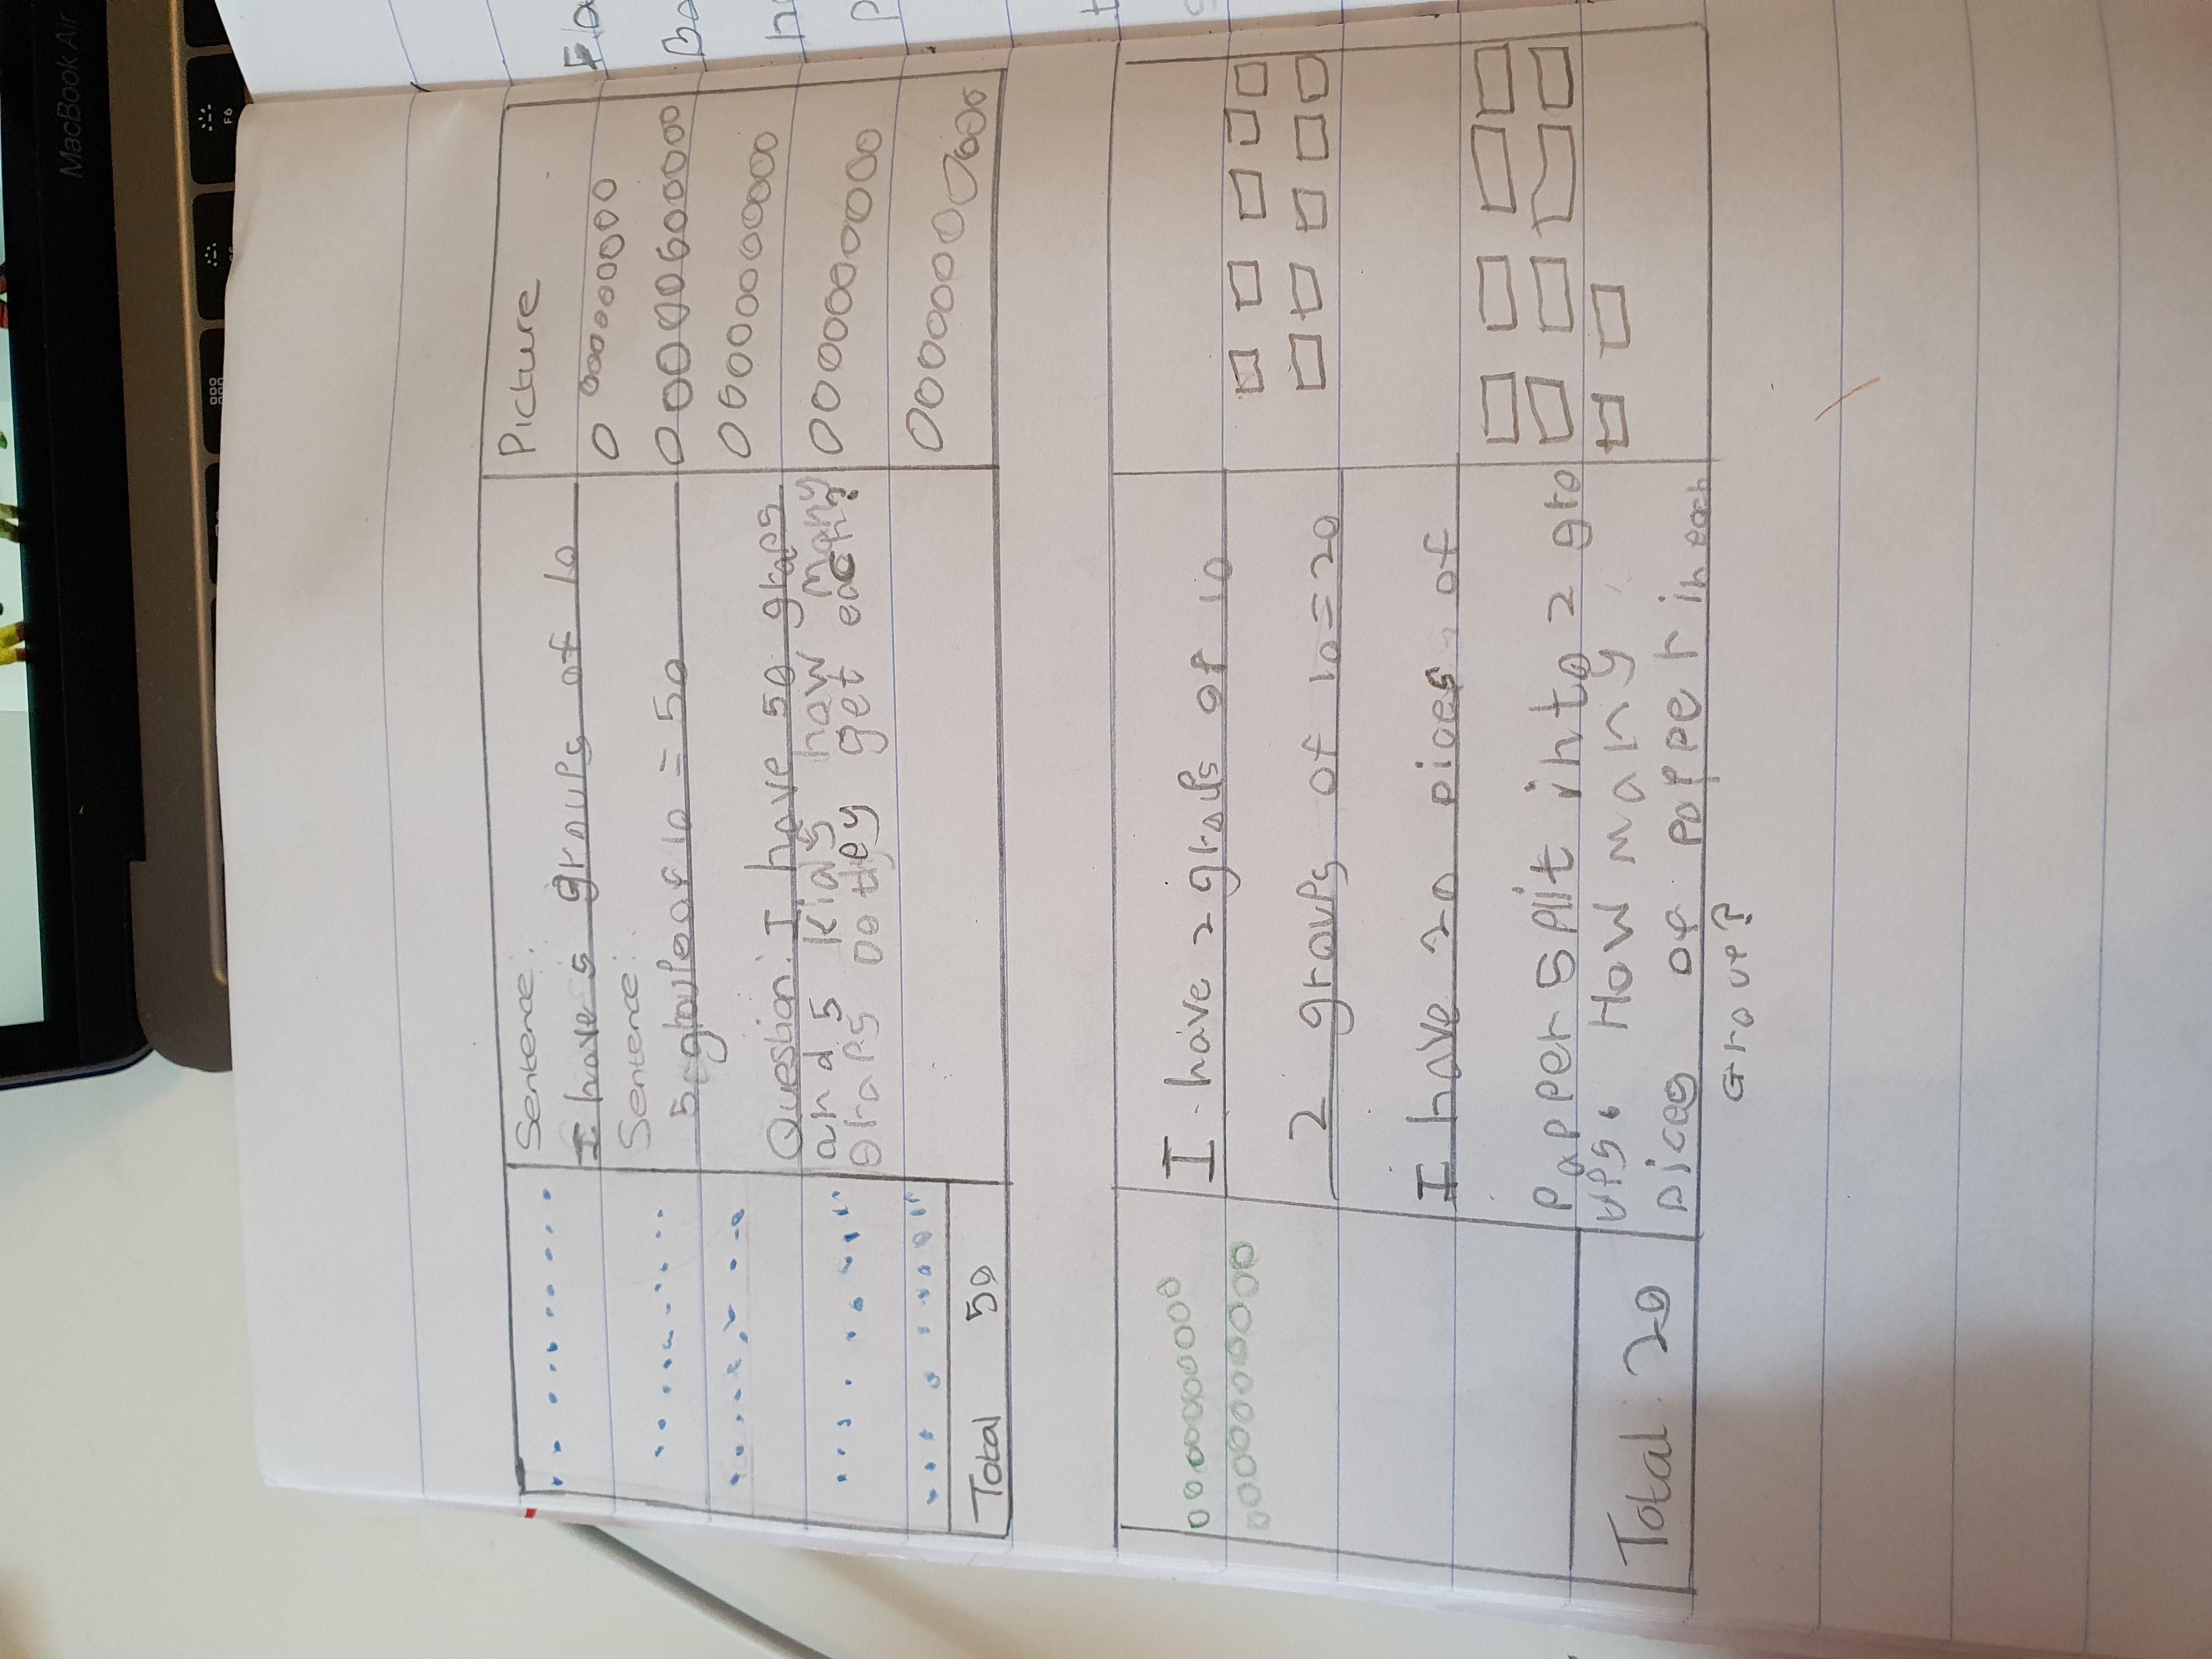 MacBook Air
F6
Sentence:
Picture
I have 5 groups of 10
Sentence:
5 groups of 10 = 50
Question: I have 50 graps
and 5 kids how many
graps do they get each?
Total 50
I have 2 groups of 10
2 groups of 10 = 20
I have 20 pices of
papper split into 2 gro
ups. How many
pices of papper in each
Group?
Total 20